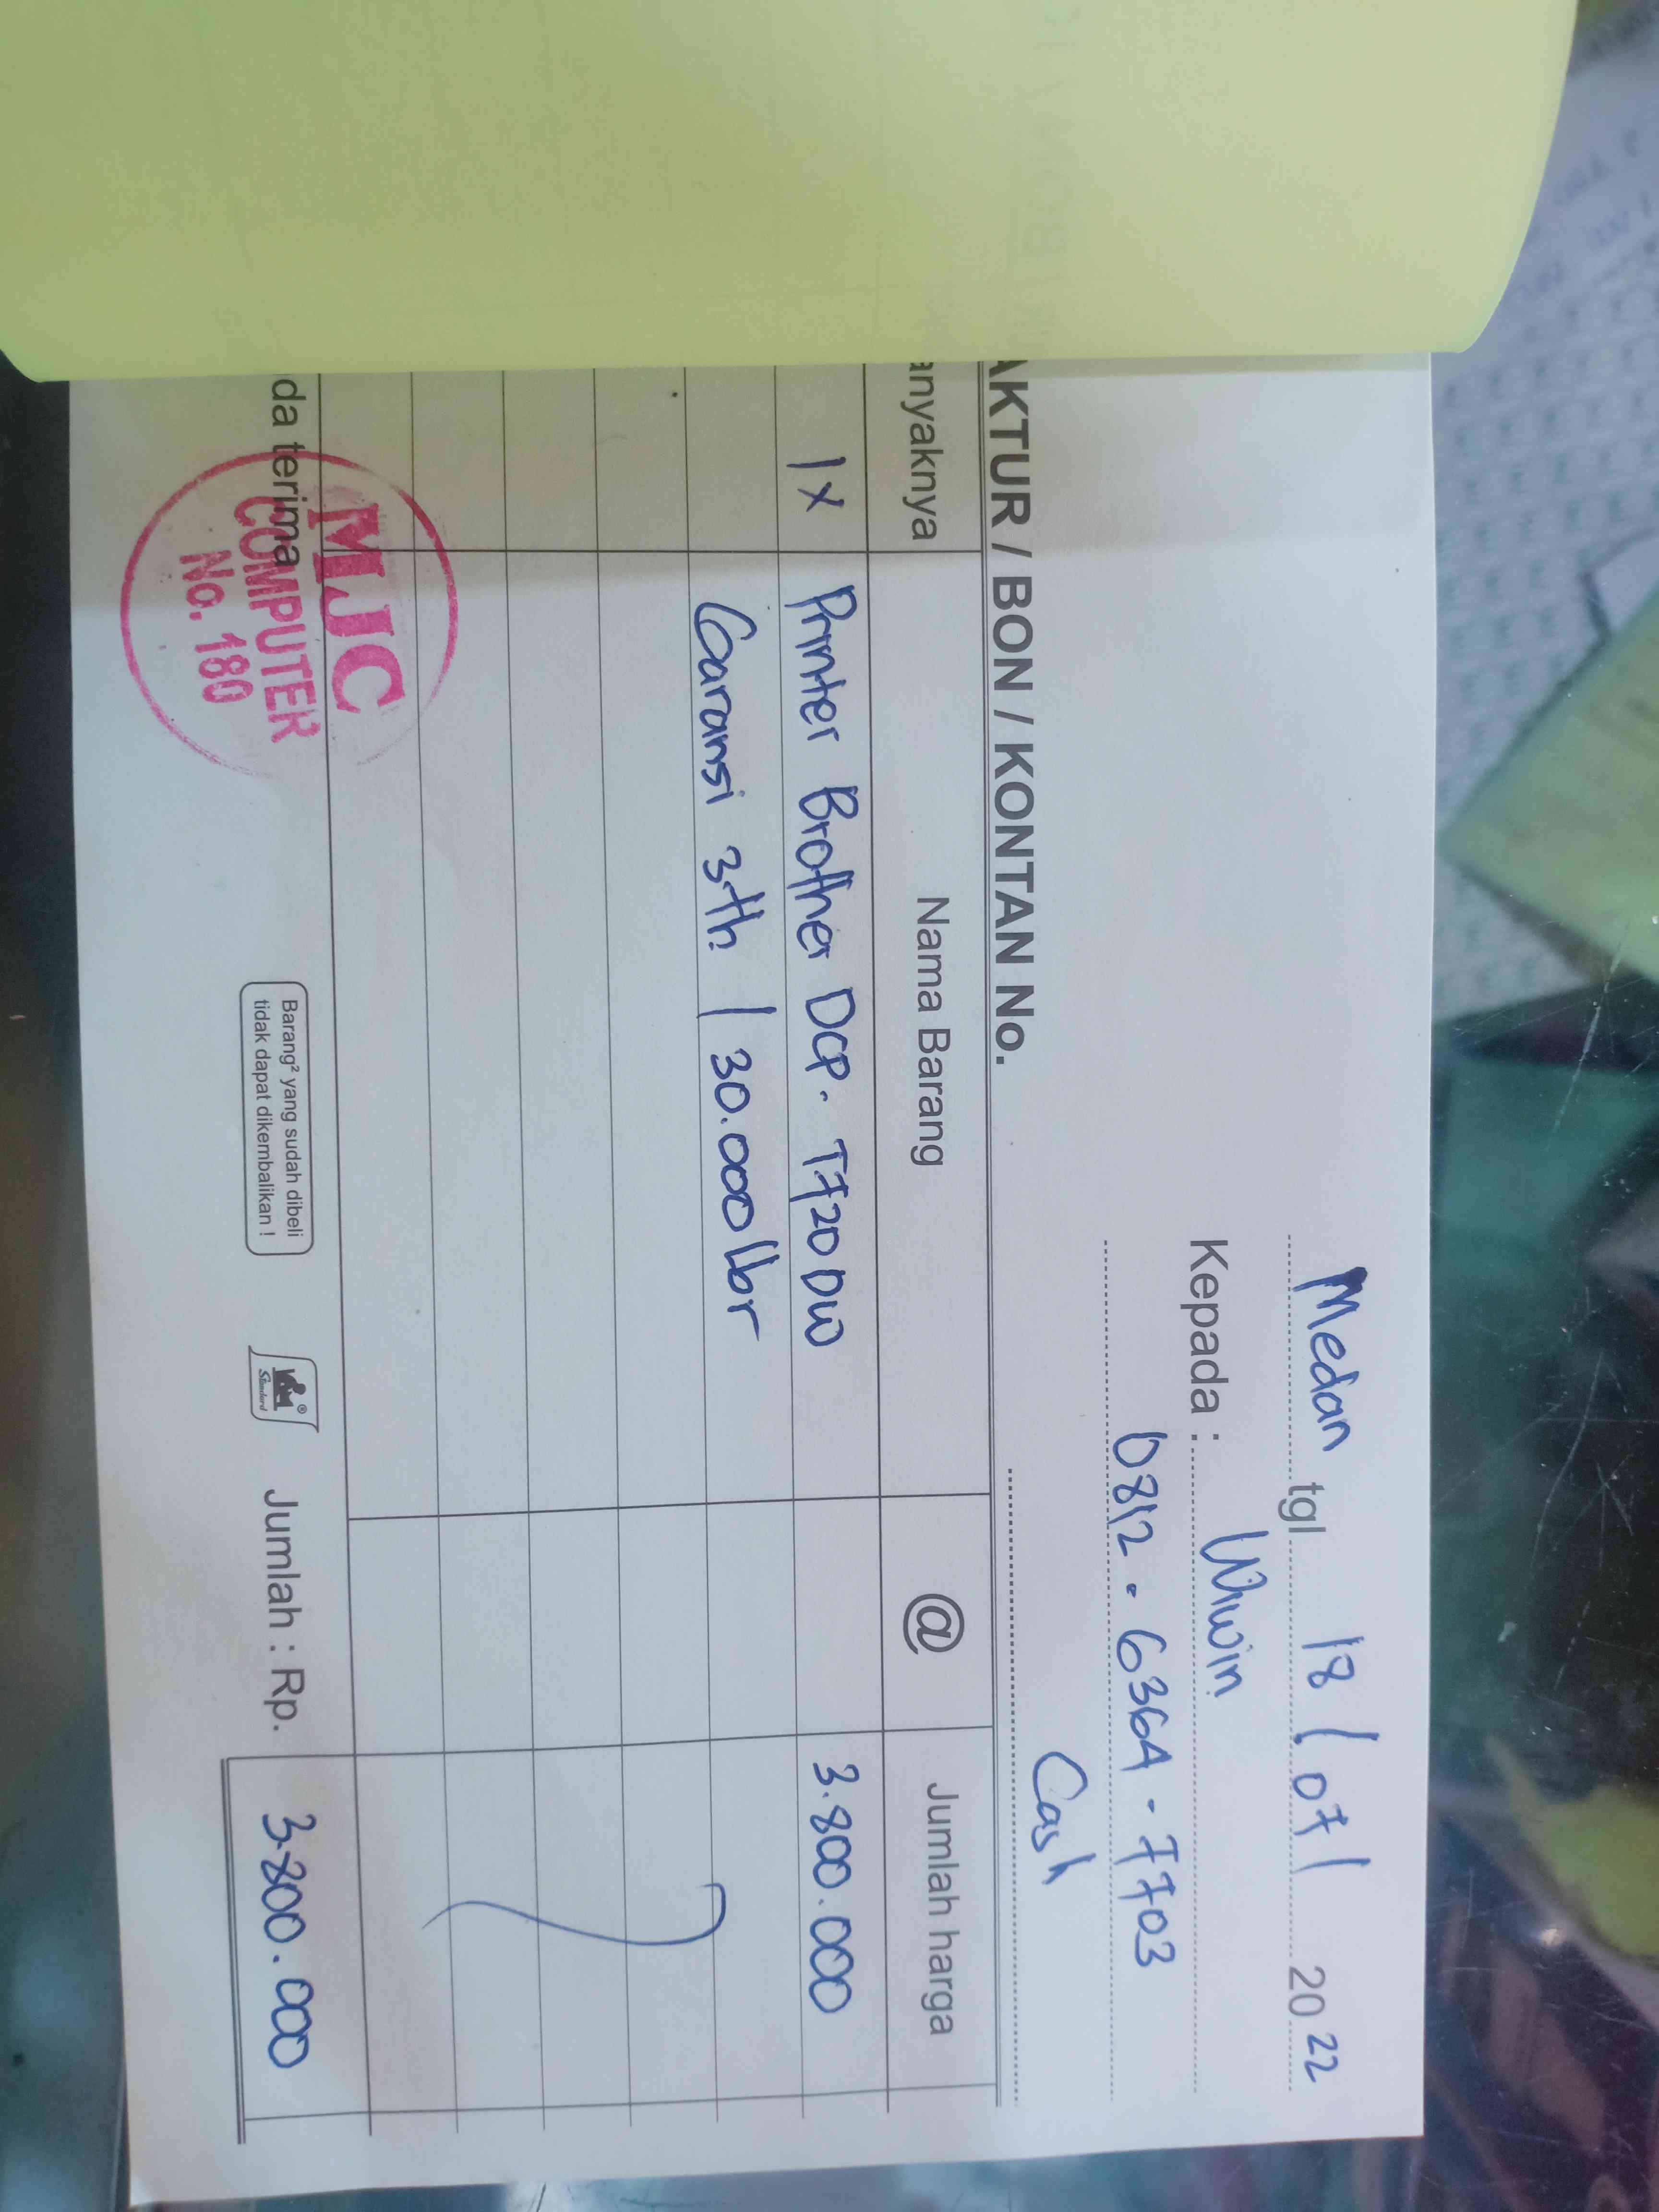 Medan tgl 18 / 07 / 2022
Kepada : Wiwin
0812 - 6364 - 7703
Cash
AKTUR / BON / KONTAN No.
anyaknya Nama Barang @ Jumlah harga
1x Printer Brother DCP. T720DW 3.800.000
Garansi 3th / 30.000 lbr
da terima
MJC
COMPUTER
No. 180
Barang² yang sudah dibeli
tidak dapat dikembalikan !
Standard
Jumlah : Rp. 3.800.000